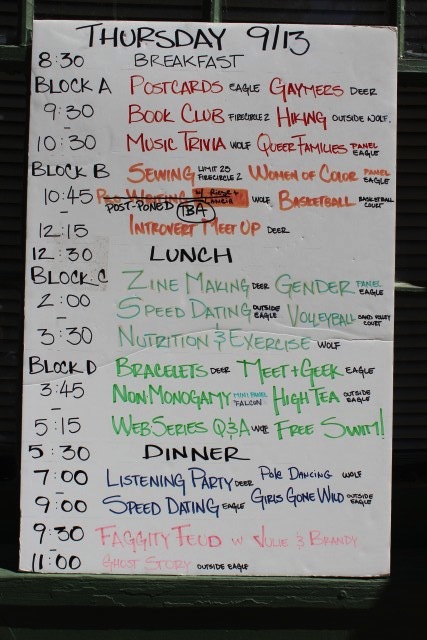 THURSDAY 9/13
8:30 BREAKFAST
BLOCK A POSTCARDS EAGLE GAYMERS DEER
9:30 BOOK CLUB FIRECIRCLE 2 HIKING OUTSIDE WOLF.
-
10:30 MUSIC TRIVIA WOLF QUEER FAMILIES PANEL EAGLE
BLOCK B SEWING LIMIT 25 FIRECIRCLE 2 WOMEN OF COLOR PANEL EAGLE
10:45 WRITING W/ RIESE + LANEIA WOLF BASKETBALL BASKETBALL COURT
- POST-PONED TBA
12:15 INTROVERT MEET UP DEER
12:30 LUNCH
BLOCK C ZINE MAKING DEER GENDER PANEL EAGLE
2:00 SPEED DATING OUTSIDE EAGLE VOLLEYBALL SAND VOLLEY COURT
-
3:30 NUTRITION & EXERCISE WOLF
BLOCK D BRACELETS DEER MEET+GEEK EAGLE
3:45 NON-MONOGAMY MINI PANEL FALCON HIGH TEA OUTSIDE EAGLE
-
5:15 WEB SERIES Q&A WOLF FREE SWIM!
5:30 DINNER
7:00 LISTENING PARTY DEER POLE DANCING WOLF
-
9:00 SPEED DATING EAGLE GIRLS GONE WILD OUTSIDE EAGLE
9:30 FAGGITY FEUD W JULIE & BRANDY
-
11:00 GHOST STORY OUTSIDE EAGLE